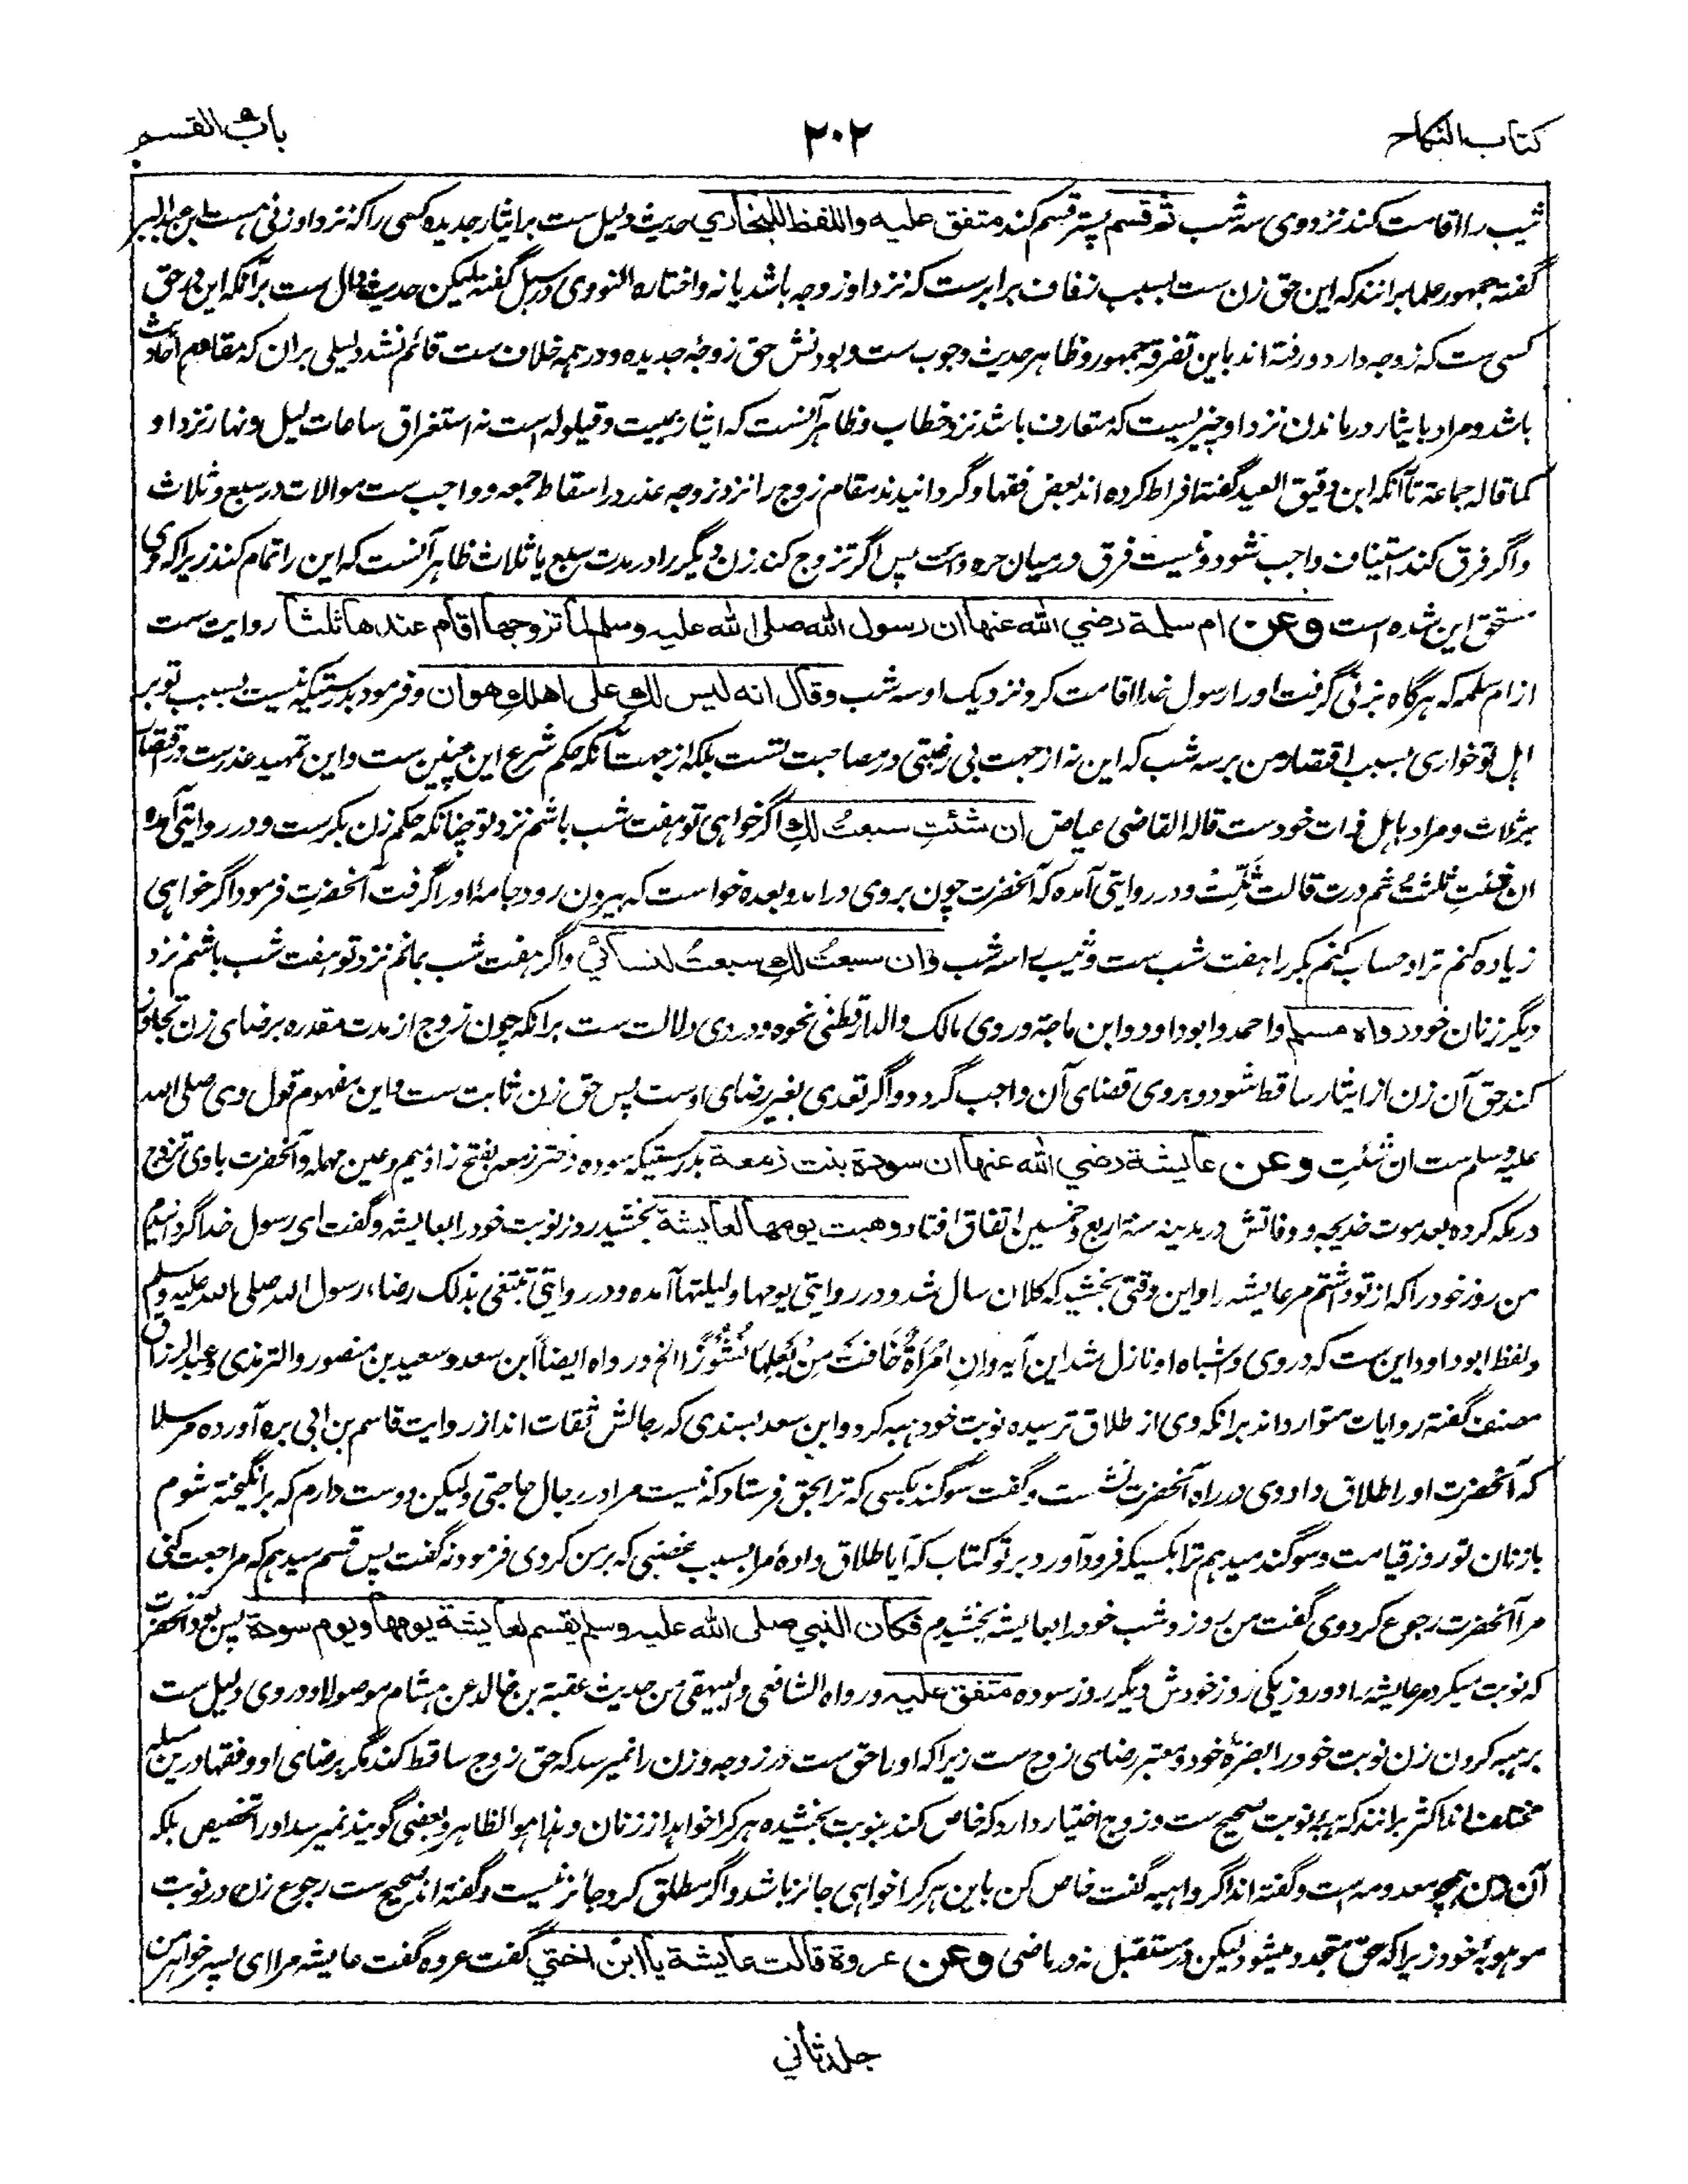 كتاب النكاح
٢٠٢
باب القسم
ثیب را اقامت کند نزد وی سه شب ثم قسم پستر قسم کند متفق علیه واللفظ للبخاري حدیث دلیل ست بر ایثار جدیده کسی را که نزد او زنی هست ابن عبدالبر
گفته جمهور علما برانند که این حق زن ست بسبب زفاف برابرست که نزد او زوجه باشد یا نه واختاره النووی در سبل گفته لیکن حدیث دال ست برآنکه این در حق
کسی ست که زوجه دارد و رفته اند باین تفرقه جمهور و ظاهر حدیث وجوب ست و بودنش حق زوجهٔ جدیده و در همه خلاف ست قائم نشد دلیلی بران که مقاوم احادیث
باشد و مراد بایثار در ماندن نزد او چیزیست که متعارف باشد نزد خطاب و ظاهر آنست که ایثار بمبیت و قیلوله است نه استغراق ساعات لیل و نهار نزد او
کما قاله جماعة تا آنکه ابن دقیق العید گفته افراط کرده اند بعض فقها و گردانیدند مقام زوج را نزد زوجه عذر در اسقاط جمعه و واجب ست موالات در سبع و ثلاث
واگر فرق کند استیناف واجب شود و نیست فرق در میان حره و امت پس اگر تزوج کند زن دیگر را در مدت سبع یا ثلاث ظاهر آنست که این را تمام کند زیرا که وی
مستحق این شده است وعن ام سلمة رضي الله عنها ان رسول الله صلى الله عليه وسلم لما تزوجها اقام عندها ثلثا روایت ست
از ام سلمه که هرگاه بزنی گرفت او را رسول خدا اقامت کرد نزدیک او سه شب وقال انه ليس بكِ على اهلكِ هوان و فرمود بدرستیکه نیست بسبب تو بر
اهل تو خواری بسبب اقتصار من بر سه شب که این نه از جهت بی رغبتی در مصاحبت تست بلکه از جهت آنکه حکم شرع این چنین ست و این تمهید عذرست در اقتصار
بر ثلاث و مراد باهل ذات خودست قاله القاضی عیاض ان شئتِ سبعتُ لكِ اگر خواهی تو هفت شب باشم نزد تو چنانکه حکم زن بکرست و در روایتی آمده
ان شئتِ ثلثتُ ثم درت قالت ثَلِّثْ و در روایتی آمده که آنحضرت چون بر وی درآمد و بعده خواست که بیرون رود جامه او را گرفت آنحضرت فرمود اگر خواهی
زیاده کنم ترا و حساب کنم بکر را هفت شب ست و ثیب را سه شب وان سبعتُ لكِ سبعتُ لنسائي واگر هفت شب بمانم نزد تو هفت شب باشم نزد
دیگر زنان خود رواه مسلم واحمد وابوداود وابن ماجة وروی مالک والدارقطنی نحوه و در وی دلالت ست برانکه چون زوج از مدت مقدره برضای زن تجاوز
کند حق آن زن از ایثار ساقط شود و بر وی قضای آن واجب گردد واگر تعدی بغیر رضای اوست پس حق زن ثابت ست و این مفهوم قول وی صلی الله
علیه وسلم ست ان شئتِ وعن عايشة رضي الله عنها ان سودة بنت زمعة بدرستیکه سوده دختر زمعه بفتح زا و میم و عین مهمله و آنحضرت با وی تزوج
در مکه کرده بعد موت خدیجه و وفاتش در مدینه سنة اربع وخمسین اتفاق افتاد وهبت يومها لعايشة بخشید روز نوبت خود را بعایشه و گفت ای رسول خدا گردانیدم
من روز خود را که از تو داشتم مر عایشه را و این وقتی بخشید که کلان سال شد و در روایتی یومها ولیلتها آمده و در روایتی تبتغی بذلک رضاء رسول الله صلی الله علیه وسلم
و لفظ ابو داود این ست که در وی و اشباه او نازل شد این آیه وانِ امْرَأةٌ خَافَتْ مِنْ بَعْلِهَا نُشُوْزًا الخ و رواه ایضاً ابن سعد و سعید بن منصور والترمذی وعبدالرزاق
مصنف گفته روایات متوارد اند برانکه وی از طلاق ترسیده نوبت خود هبه کرد و ابن سعد بسندی که رجالش ثقات اند از روایت قاسم بن ابی بزه آورده مرسلا
که آنحضرت او را طلاق داد وی در راه آنحضرت نشست و گفت سوگند بکسی که ترا بحق فرستاد که نیست مرا در رجال حاجتی ولیکن دوست دارم که برانگیخته شوم
با زنان تو روز قیامت و سوگند میدهم ترا بکسیکه فرود آورد بر تو کتاب که آیا طلاق دادهٔ مرا بسبب غضبی که بر من کردی فرمود نه گفت پس قسم میدهم که مراجعت کنی
مرا آنحضرت رجوع کرد وی گفت من روز و شب خود را بعایشه بخشیدم فكان النبي صلى الله عليه وسلم يقسم لعايشة يومها ويوم سودة پس بود آنحضرت
که نوبت میکرد مر عایشه را دو روز یکی روز خودش دیگر روز سوده متفق عليه ورواه الشافعی والبیهقی من حدیث عقبة بن خالد عن هشام موصولا و در وی دلیل ست
بر هبه کردن زن نوبت خود را بضرهٔ خود و معتبر رضای زوج ست زیرا که او را حق ست در زوجه و زن را نمیرسد که حق زوج ساقط کند مگر برضای او و فقها درین مسئله
مختلف اند اکثر برانند که هبهٔ نوبت صحیح ست و زوج اختیار دارد که خاص کند بنوبت بخشیده هر کرا خواهد از زنان وهذا هو الظاهر و بعضی گویند نمیرسد او را تخصیص بلکه
آن زن همچو معدومه است و گفته اند اگر واهبه گفت خاص کن باین هر کرا خواهی جائز باشد واگر مطلق کرد جائز نیست و گفته اند صحیح ست رجوع زن در نوبت
موهوبهٔ خود زیرا که حق متجدد میشود لیکن در مستقبل نه در ماضی وعن عروة قالت عايشة يا ابن اختي گفت عروه گفت عایشه مرا ای پسر خواهر من
جلد ثاني